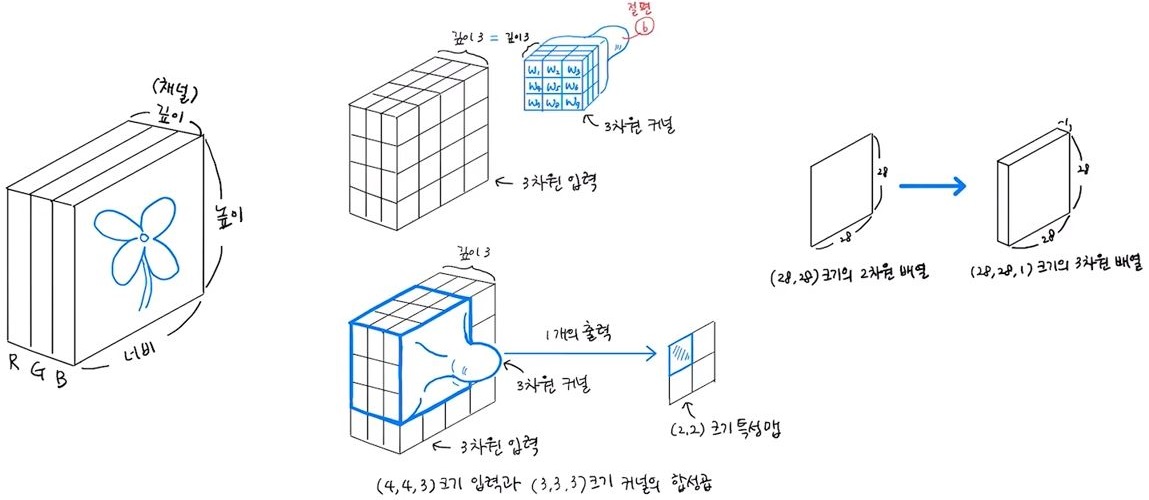 (채널)
깊이
높이
너비
R G B
깊이 3 = 깊이 3
절편
b
W₁ W₂ W₃
W₄ W₅ W₆
W₇ W₈ W₉
3차원 커널
3차원 입력
깊이 3
1개의 출력
3차원 커널
3차원 입력
(2,2) 크기 특성맵
(4,4,3) 크기 입력과 (3,3,3) 크기 커널의 합성곱
28
28
(28,28) 크기의 2차원 배열
1
28
28
(28,28,1) 크기의 3차원 배열